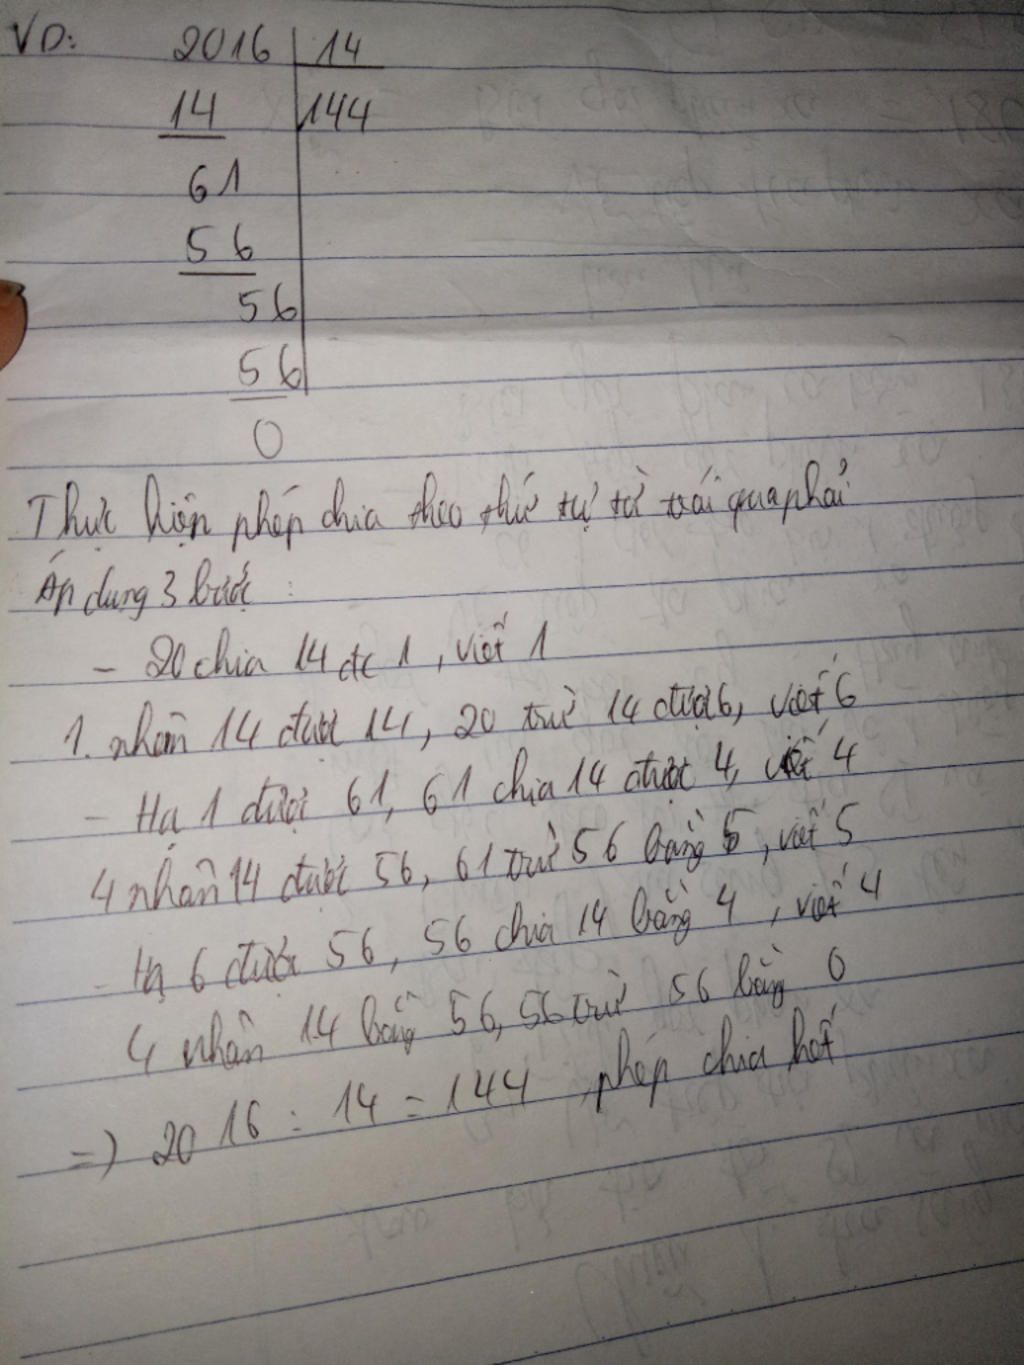 VD: 2016 14
14 144
61
56
56
56
0
Thực hiện phép chia theo thứ tự từ trái qua phải
Áp dụng 3 bước :
- 20 chia 14 đc 1, viết 1
1. nhân 14 được 14, 20 trừ 14 được 6, viết 6
- Hạ 1 được 61, 61 chia 14 được 4, viết 4
4 nhân 14 được 56, 61 trừ 56 bằng 5, viết 5
- Hạ 6 được 56, 56 chia 14 bằng 4, viết 4
4 nhân 14 bằng 56, 56 trừ 56 bằng 0
=> 2016 : 14 = 144, phép chia hết